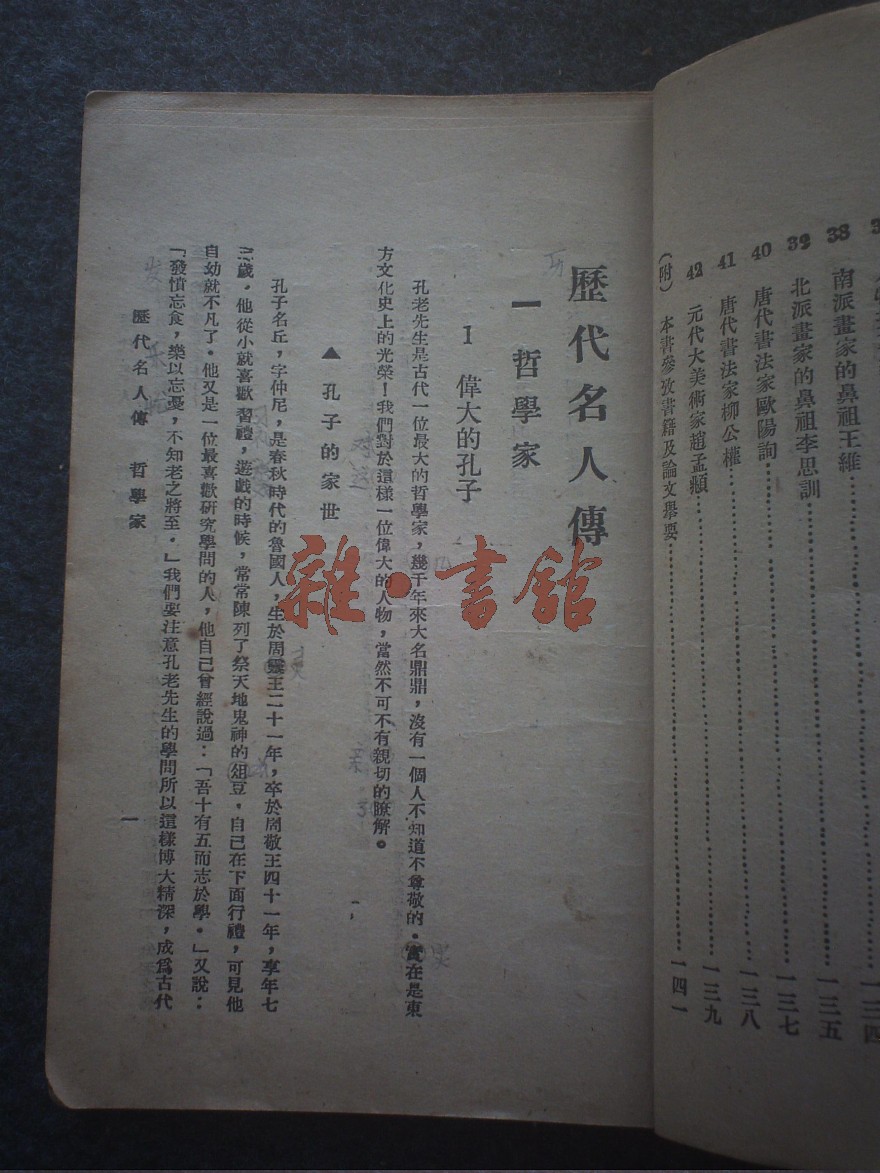 南派畫家的鼻祖王維
38
一三五
39 北派畫家的鼻祖李思訓
一三七
40 唐代書法家歐陽詢
一三八
41 唐代書法家柳公權
一三九
42 元代大美術家趙孟頫
一四一
(附) 本書參攷書籍及論文舉要
歷代名人傳
一 哲學家
1 偉大的孔子
孔老先生是古代一位最大的哲學家,幾千年來大名鼎鼎,沒有一個人不知道不尊敬的。實在是東
方文化史上的光榮!我們對於這樣一位偉大的人物,當然不可不有親切的瞭解。
▲ 孔子的家世
孔子名丘,字仲尼,是春秋時代的魯國人,生於周靈王二十一年,卒於周敬王四十一年,享年七
三歲。他從小就喜歡習禮,遊戲的時候,常常陳列了祭天地鬼神的俎豆,自己在下面行禮,可見他
自幼就不凡了。他又是一位最喜歡研究學問的人,他自己曾經說過:「吾十有五而志於學。」又說:
「發憤忘食,樂以忘憂,不知老之將至。」我們要注意孔老先生的學問所以這樣博大精深,成爲古代
歷代名人傳 哲學家
一
雜·書館